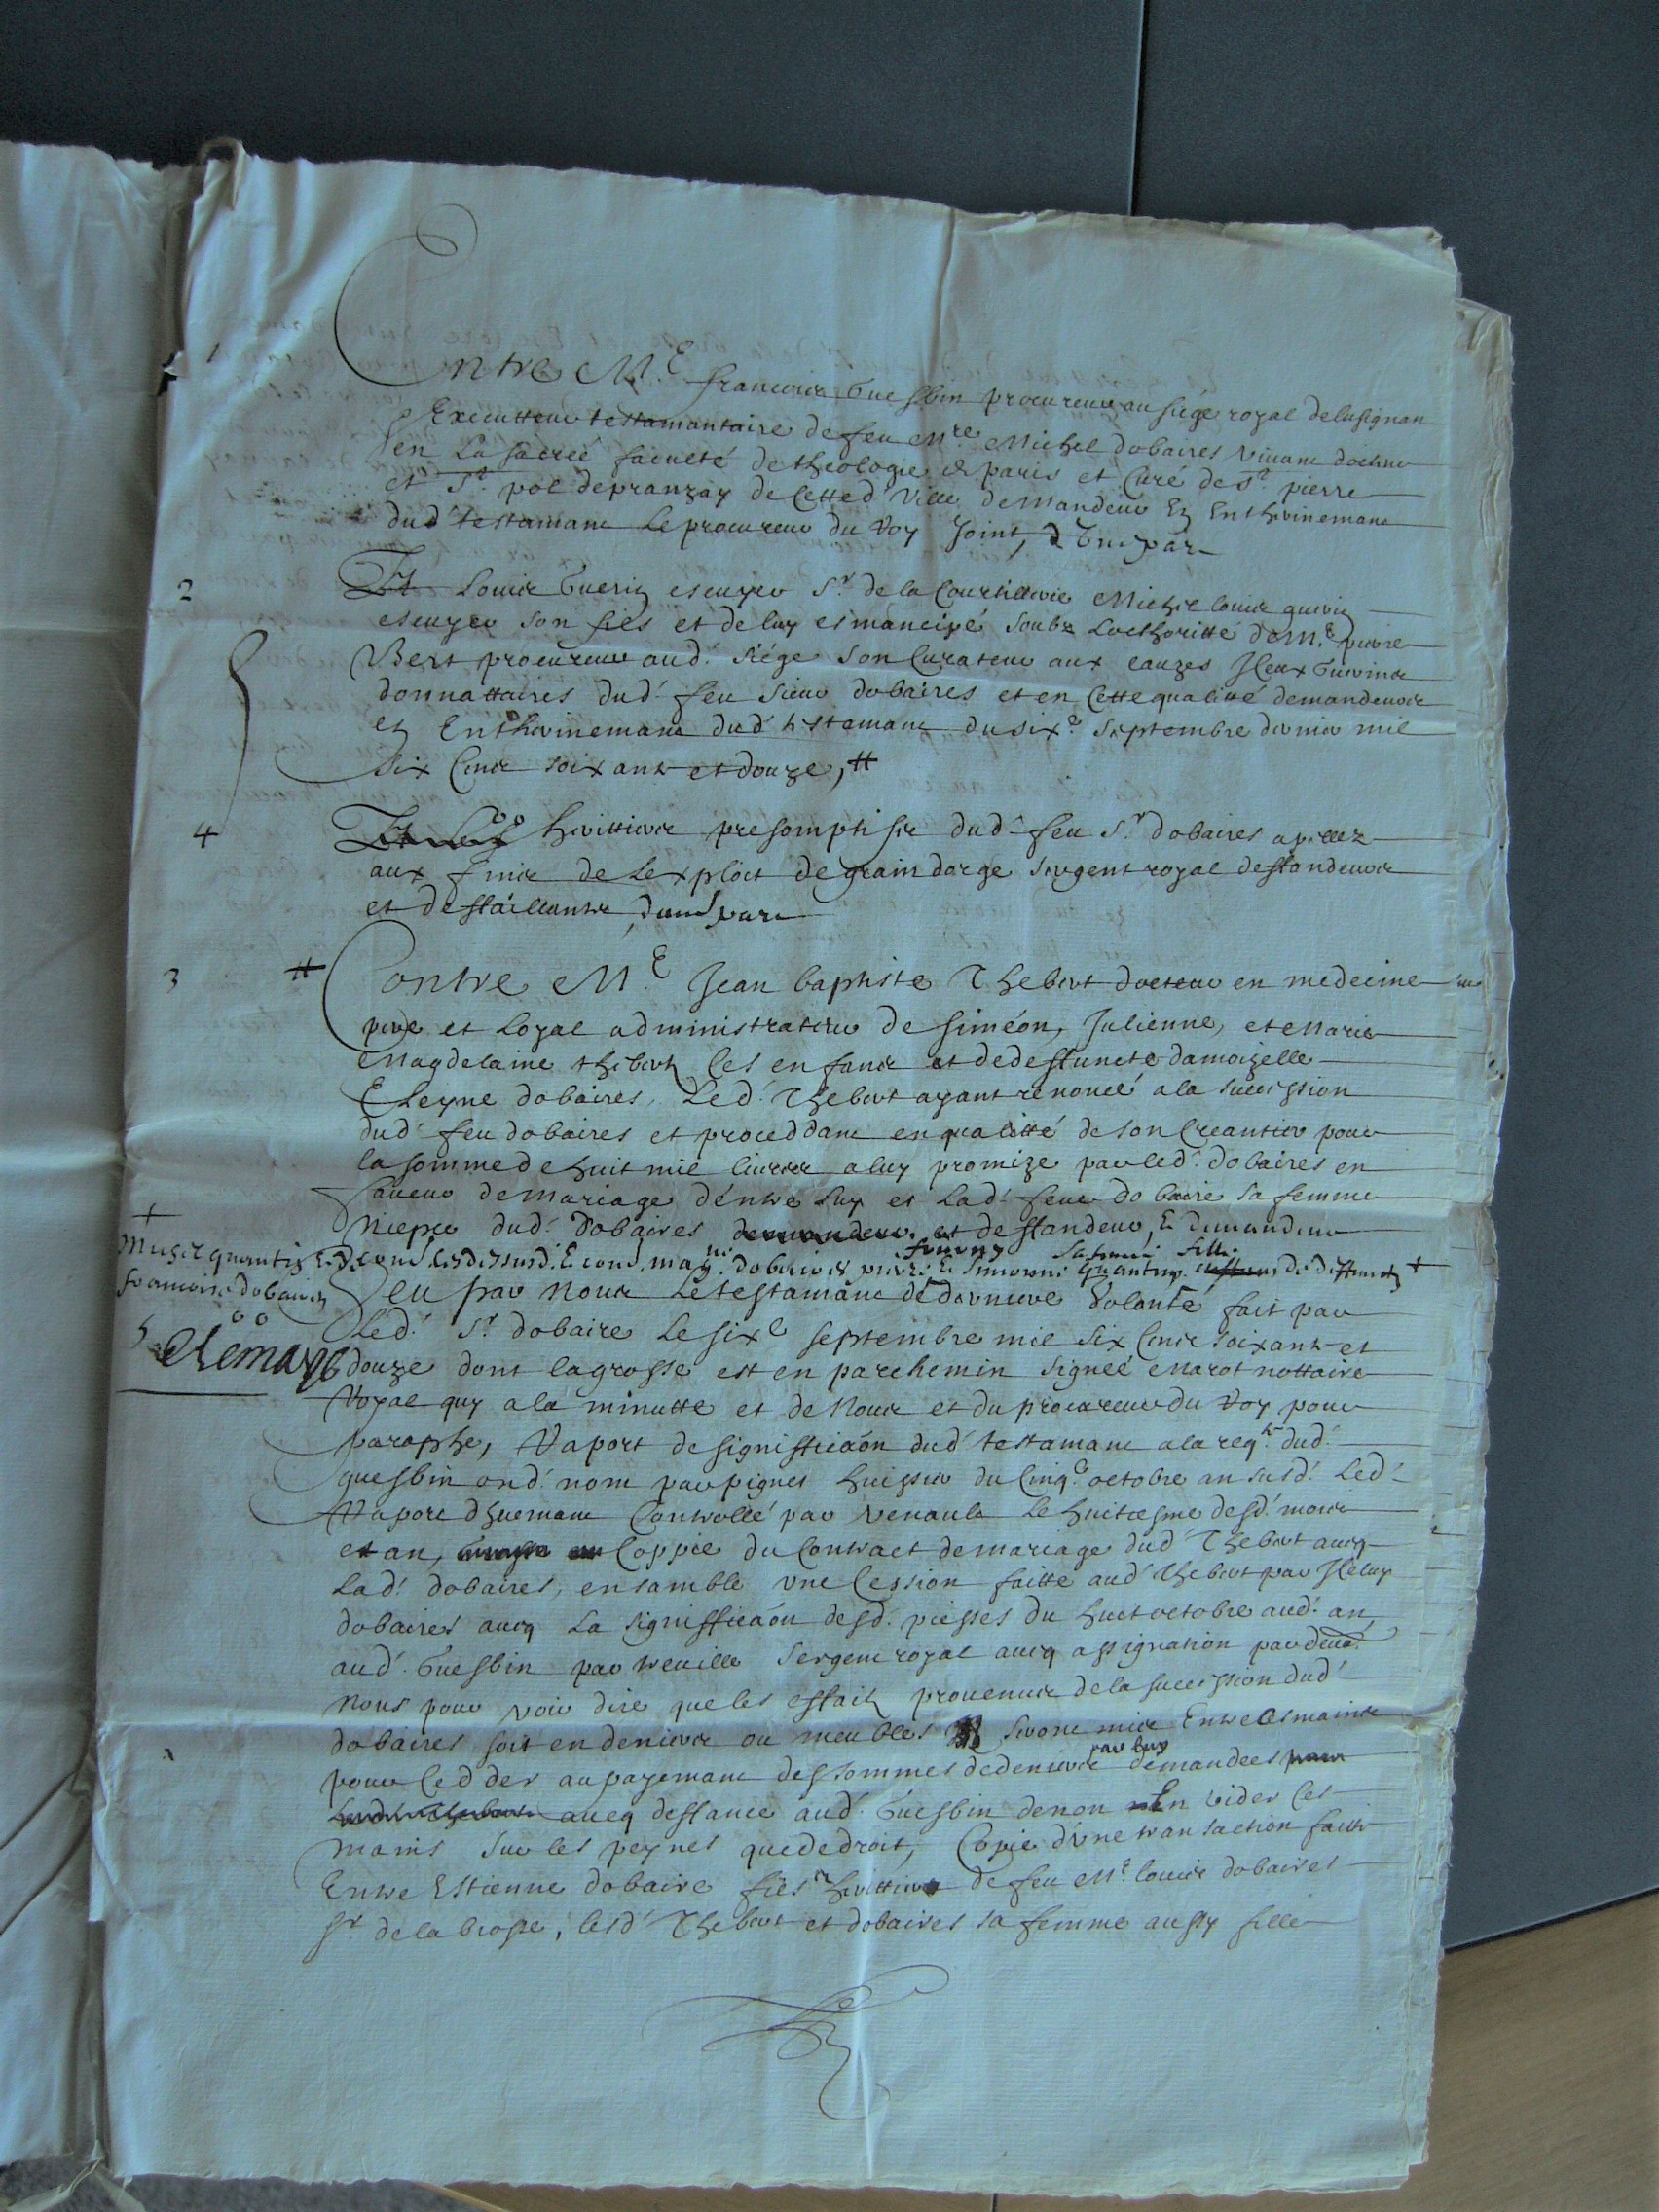 1
Entre Me francois Guesbin procureur au siége royal de lusignan
Executteur testamantaire de feu Mre Michel dobaires vivant docteur
en la sacreé faculté de theologie de paris et Curé de St pierre
et St pol de pranzay de Cette d' ville demandeur En Entherinemant
dud' testamant le procureur du Roy Joint, d'Une part
2
Et Louis Guerin escuyer Sr de la Courtillerie Michel louis guerin
escuyer son fils et de luy esmancipé soubz Lothoritté de Me pierre
Bert procureur aud. siége son Curateur aux causes Iceux Guerins
donnattaires dud' feu sieur dobaires et en Cette qualitté demandeurs
en Entherinemant dud' testamant du six.e septembre dernier mil
six Cens soixante et douze, #
4
Et les heritiers presomptifs dud' feu Sr dobaires apellez
aux fins de Lexploit de graindorge sergent royal deffandeurs
et deffaillants, d'une part
3
# Contre Me Jean baptiste Thebert docteur en medecine
pere et Loyal administrateur de Siméon, Julienne, et Marie
Magdelaine thebert Ses enfans et de deffuncte damoizelle
Eleyne dobaires, Led. Thebert ayant renoncé a la succession
dud' feu dobaires et proceddant en qualitté de son Creantier pour
la somme de huit mil livres a luy promize par led. dobaires en
faveur de mariage d'entre luy et lad' feue dobaire sa femme
Niepce dud. dobaires demandeur et deffandeur, & demandeur
+
francoise dobaires
5
Veu par Nous Le testamant de derniere volonté fait par
Led. Sr dobaire le six.e septembre mil six Cens soixante et
douze dont la grosse est en parchemin Signeé Marot nottaire
Royal quy a la minutte et de Nous et du procureur du Roy pour
paraphe, Raport de signifficãon dud' testamant a la reqte dud.
guesbin ond. nom par pignet huissier du Cinq.e octobre an susd. Led.
Raport dhuemant Controllé par renault le huitiesme desd. mois
et an, Coppie du Contract de mariage dud' Thebert avecq
Lad. dobaires, ensamble une Cession faitte aud' Thebert par Iceluy
dobaires avecq La signifficãon desd. piesses du huit octobre aud. an,
aud. Guesbin par treuille Sergent royal avecq assignation par devant
nous pour voir dire que les effaits provenus de la succession dud'
dobaires soit en deniers ou meubles seront mis Entre Ses mains
par luy
pour Cedder au payemant des sommes de deniers demandees
avecq deffance aud. Guesbin de non En vider Ses
mains sur les peynes que de droit, Copie d'une transaction faitte
Entre Estienne dobaire fils heritier de feu Me louis dobaires
Sr de la brosse, lesd' Thebert et dobaires sa femme aussy fille